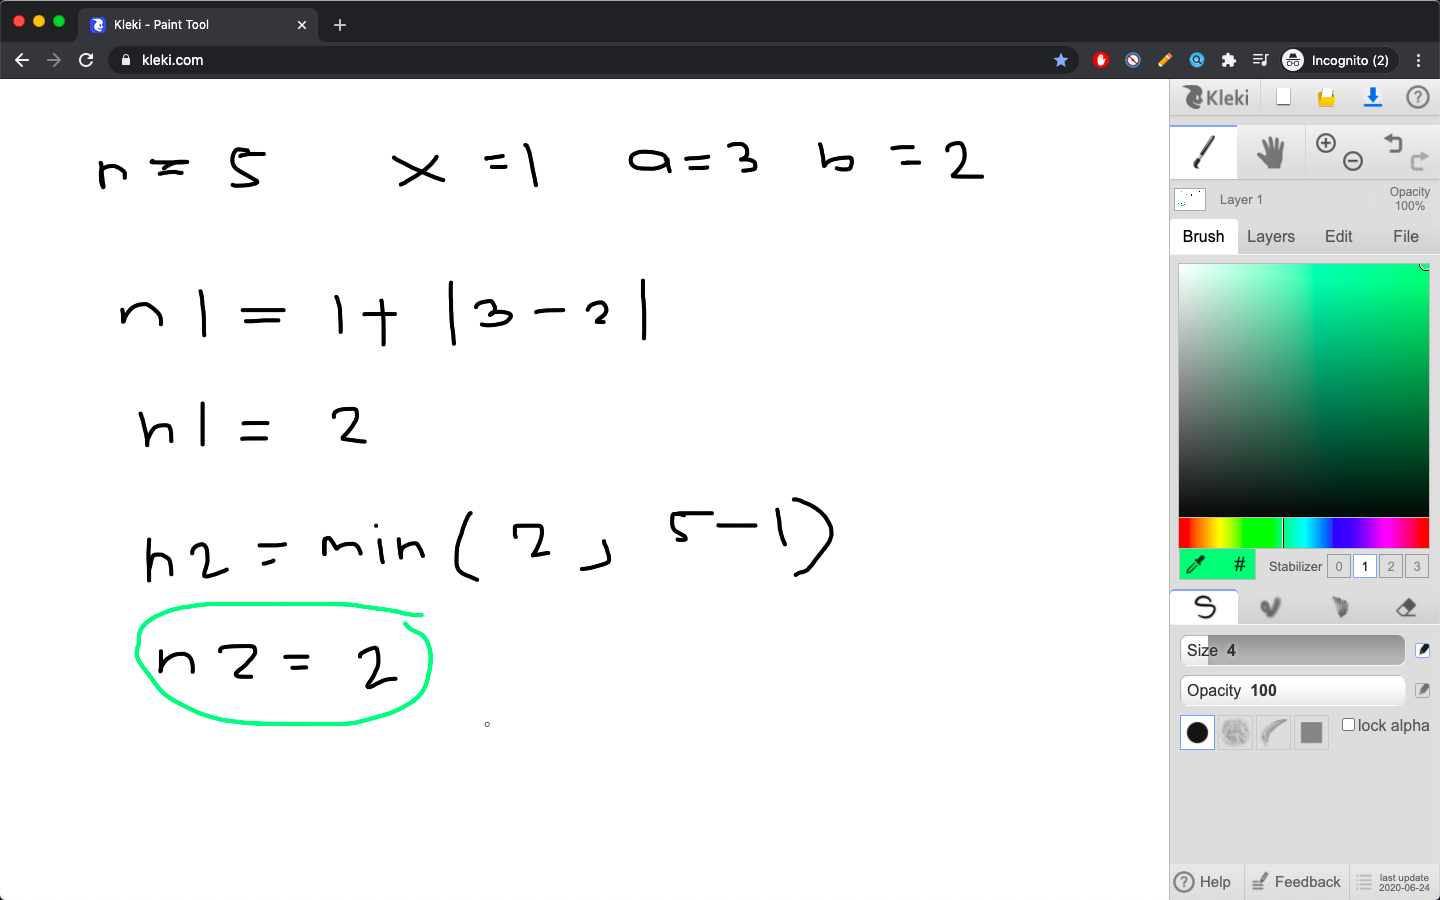 Kleki - Paint Tool
kleki.com
Incognito (2)
Kleki
n = 5 x = 1 a = 3 b = 2
n1 = 1 + |3 - 2|
n1 = 2
n2 = min ( 2 , 5 - 1)
n2 = 2
Layer 1
Opacity
100%
Brush Layers Edit File
# Stabilizer 0 1 2 3
Size 4
Opacity 100
lock alpha
Help Feedback last update
2020-06-24